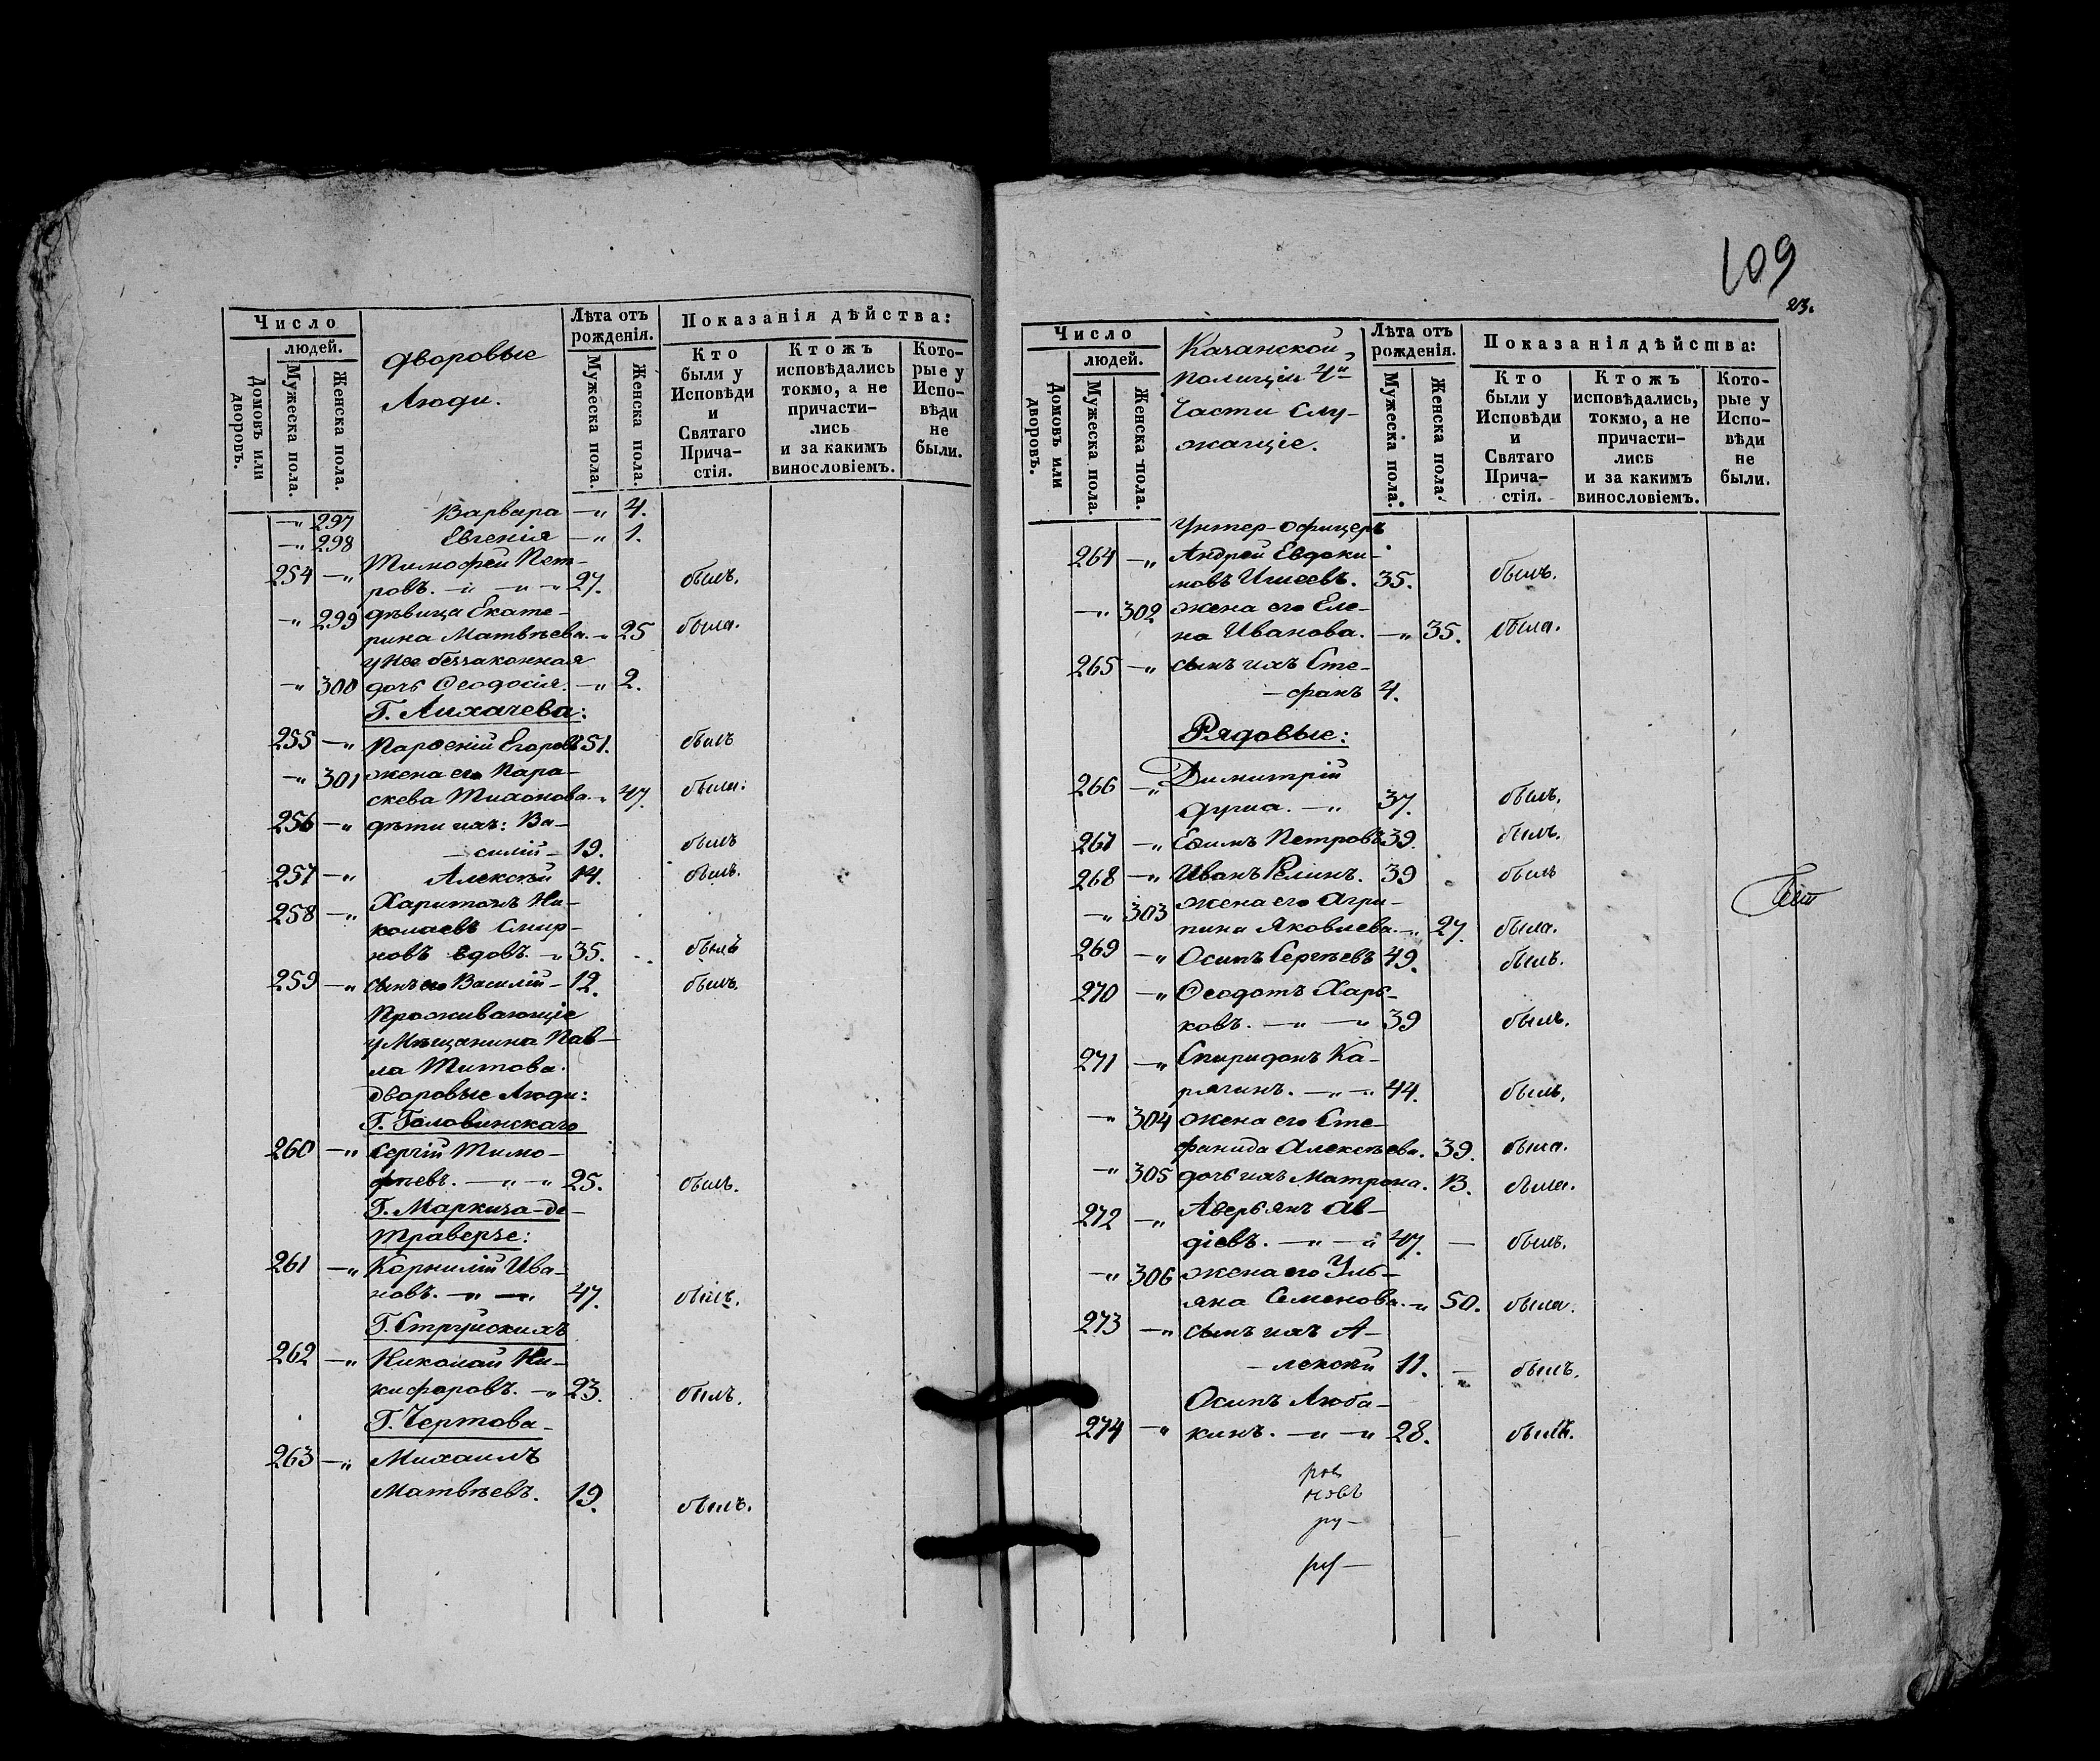 Число
людей.
Домовъ или дворовъ.
Мужеска пола.
Женска пола.
Дворовые
Люди.
Лѣта отъ
рожденія.
Мужеска пола.
Женска пола.
Показанія дѣйства:
Кто
были у
Исповѣди
и
Святаго
Прича-
стія.
Ктожъ
исповѣдались
токмо, а не
причасти-
лись
и за какимъ
винословіемъ.
Кото-
рые у
Испо-
вѣди
не
были.
—„ 297 Варвара —„ 4.
—„ 298 Евгенія —„ 1.
Тимофей Пет-
254 —„ ровъ. —„ —„ 27. былъ.
—„ 299 дѣвица Екате-
рина Матвѣева. „ 25 была.
у нее беззаконная
—„ 300 дочь Ѳеодосія. —„ 2.
Г. Лихачева:
255 —„ Парѳеній Егоровъ 51. былъ
—„ 301 жена его Пара-
скева Тихонова. „ 47. была.
256 —„ дѣти ихъ: Ва-
— силій — 19. былъ
257 —„ Алексѣй 14. былъ.
Харитонъ Ни-
258 —„ колаевъ Смир-
новъ вдовъ. —„ 35. былъ
259 —„ сынъ его Василій — 12. былъ.
Проживающіе
у Мѣщанина Пав-
ла Титова.
Дворовые Люди:
Г. Головинскаго
260 —„ Сергій Тимо-
фѣевъ. —„ —„ 25. былъ.
Г. Маркиза-де-
Траверзе:
261 —„ Корнилій Ива-
новъ. —„ —„ 47. былъ.
Г. Струйскихъ
262 —„ Николай Ни-
кифоровъ. —„ 23. былъ.
Г. Чертова-
263 —„ Михаилъ
Матвѣевъ. 19. былъ.
109
23.
Число
людей.
Домовъ или дворовъ.
Мужеска пола.
Женска пола.
Казанской
Полиціи 4й
Части Слу-
жащіе.
Лѣта отъ
рожденія.
Мужеска пола.
Женска пола.
Показанія дѣйства:
Кто
были у
Исповѣди
и
Святаго
Прича-
стія.
Ктожъ
исповѣдались,
токмо, а не
причасти-
лись
и за какимъ
винословіемъ.
Кото-
рые у
Испо-
вѣди
не
были.
Унтер-Офицеръ
264 —„ Андрей Евдоки-
мовъ 35. былъ.
—„ 302 жена его Еле-
на Иванова. —„ 35. была.
265 —„ сынъ ихъ Сте-
— фанъ 4.
Рядовые:
266 —„ Димитрій
—„ 37. былъ.
267 —„ Петровъ 39. былъ.
268 —„ Иванъ 39 былъ
—„ 303 жена его Агри-
пина Яковлева. —„ 27. была.
269 —„ Осипъ Сергѣевъ 49. былъ.
270 —„ Ѳеодотъ Харь-
ковъ. —„ —„ 39 былъ.
271 —„ Спиридонъ Ка-
рягинъ. —„ —„ 44. былъ.
—„ 304 жена его Сте-
фанида Алексѣева. 39. была.
—„ 305 дочь ихъ Матрона. 13. была.
272 —„ Аверьянъ Ав-
діевъ. —„ —„ 47. — былъ.
—„ 306 жена его Уль-
яна Семенова. —„ 50. была.
273 —„ сынъ ихъ А-
— лексѣй 11. — былъ.
Осипъ Люба-
274 —„ кинъ. —„ —„ 28. былъ.